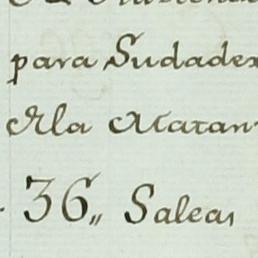 para Sudades
Ala Matan
36,, Saleas